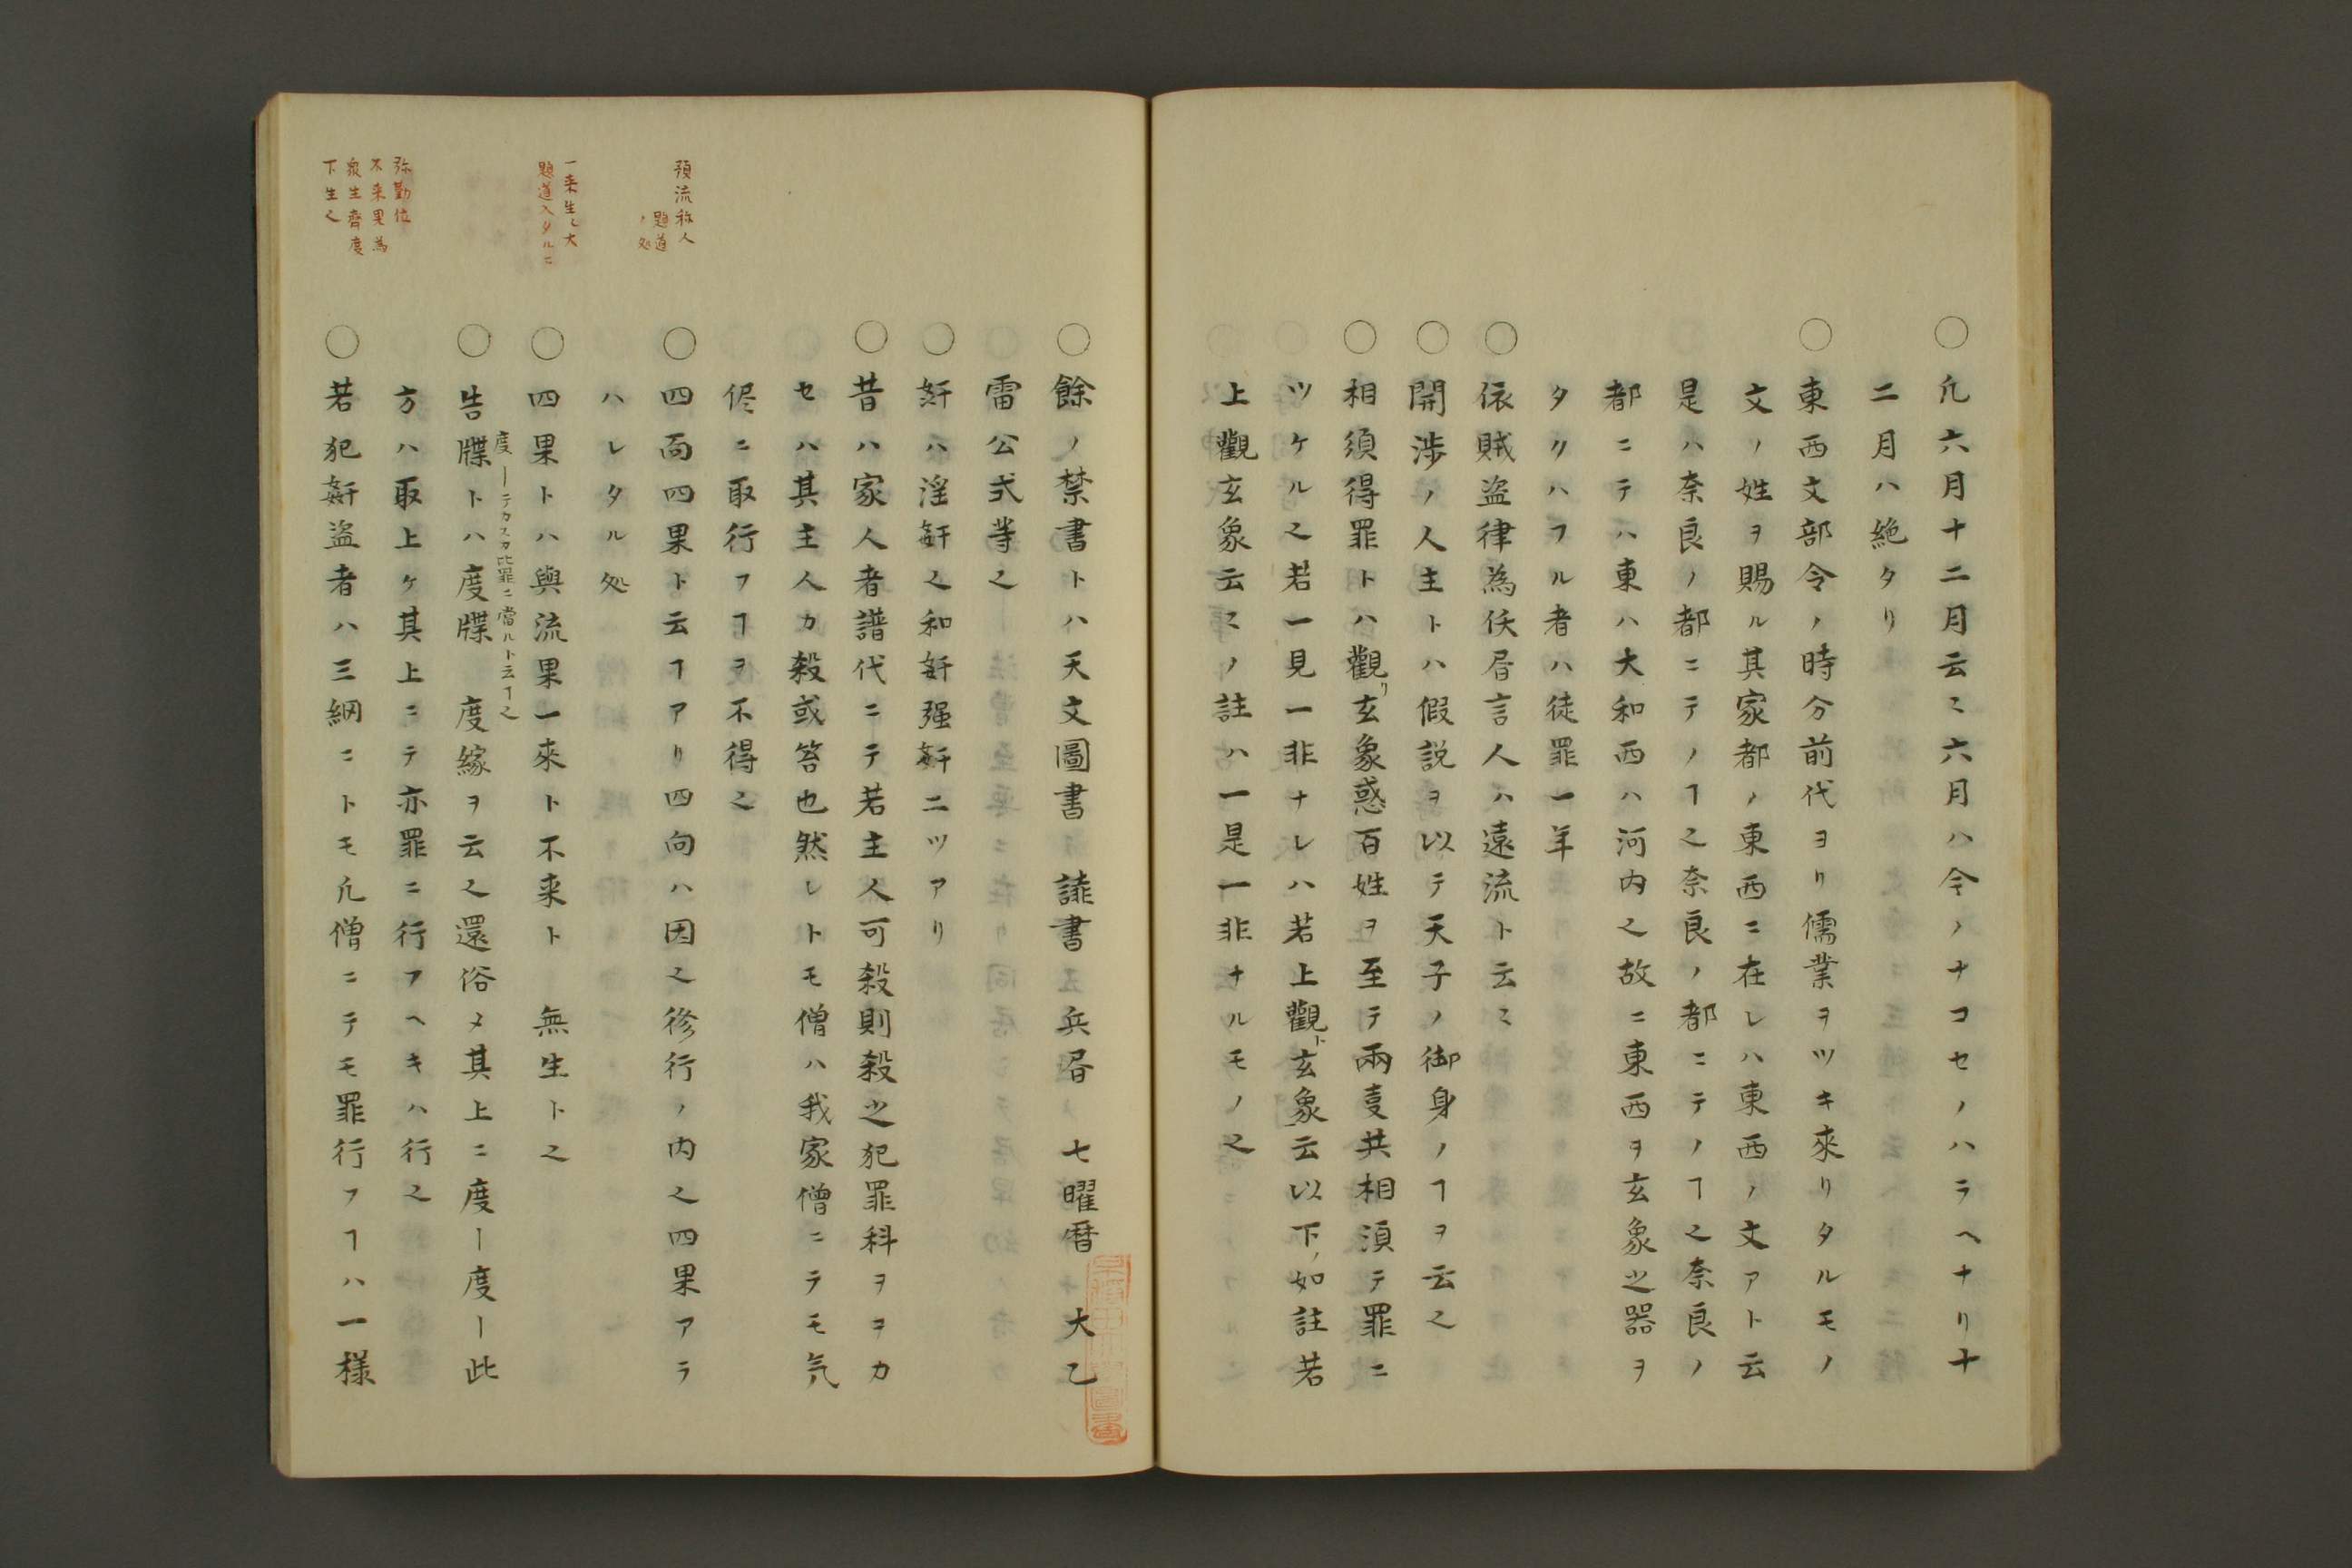 〇凢六月十二月云〻六月ハ今ノナコセノハラヘナリ十
二月ハ絶タリ
〇東西文部令ノ時分前代ヨリ儒業ヲツキ來リタルモノ
文ノ姓ヲ賜ル其家都ノ東西ニ在レハ東西ノ文アト云
是ハ奈良ノ都ニテノヿ之奈良ノ都ニテノヿ之奈良ノ
都ニテハ東ハ大和西ハ河内之故ニ東西ヲ玄象之器ヲ
タクハフル者ハ徒罪一羊
〇依賊盗律為伕㫺言人ハ遠流ト云〻
〇開渉ノ人主トハ假説ヲ以テ天子ノ御身ノヿヲ云之
〇相須得罪トハ觀リ玄象惑百姓ヲ至テ兩㕝共相湏テ罪ニ
ツケル之若一見一非ナレハ若上觀ト玄象云以下ノ如註若
上觀玄象云〻ノ註ハ一是一非ナルモノ之
〇餘ノ禁書トハ天文圖書 䜟書 兵㫺 七曜暦 大乙
雷公式等之
〇姧ハ淫姧之和姧强姧二ツアリ
〇昔ハ家人者譜代ニテ若主人可殺則殺之犯罪科ヲコカ
セハ其主人カ殺或笞也然レトモ僧ハ我家僧ニテモ気
侭ニ取行フヿヲ不得之
〇四面四果ト云ヿアリ四向ハ因之修行ノ内之四果アラ
ハレタル処
〇四果トハ與流果一來ト不来ト 無生ト之
度ーテカスカ此罪ニ當ルト云ヿ之
〇告牒トハ度牒 度縁ヲ云之還俗メ其上ニ度ー度ー此
方ハ取上ケ其上ニテ亦罪ニ行フヘキハ行之
〇若犯姧盗者ハ三綱ニトモ凢僧ニテモ罪行フヿハ一様
預流称人
題道
ノ処
一来生之大
題道入タルニ
弥勤位
不来果為
衆生齊度
下生之